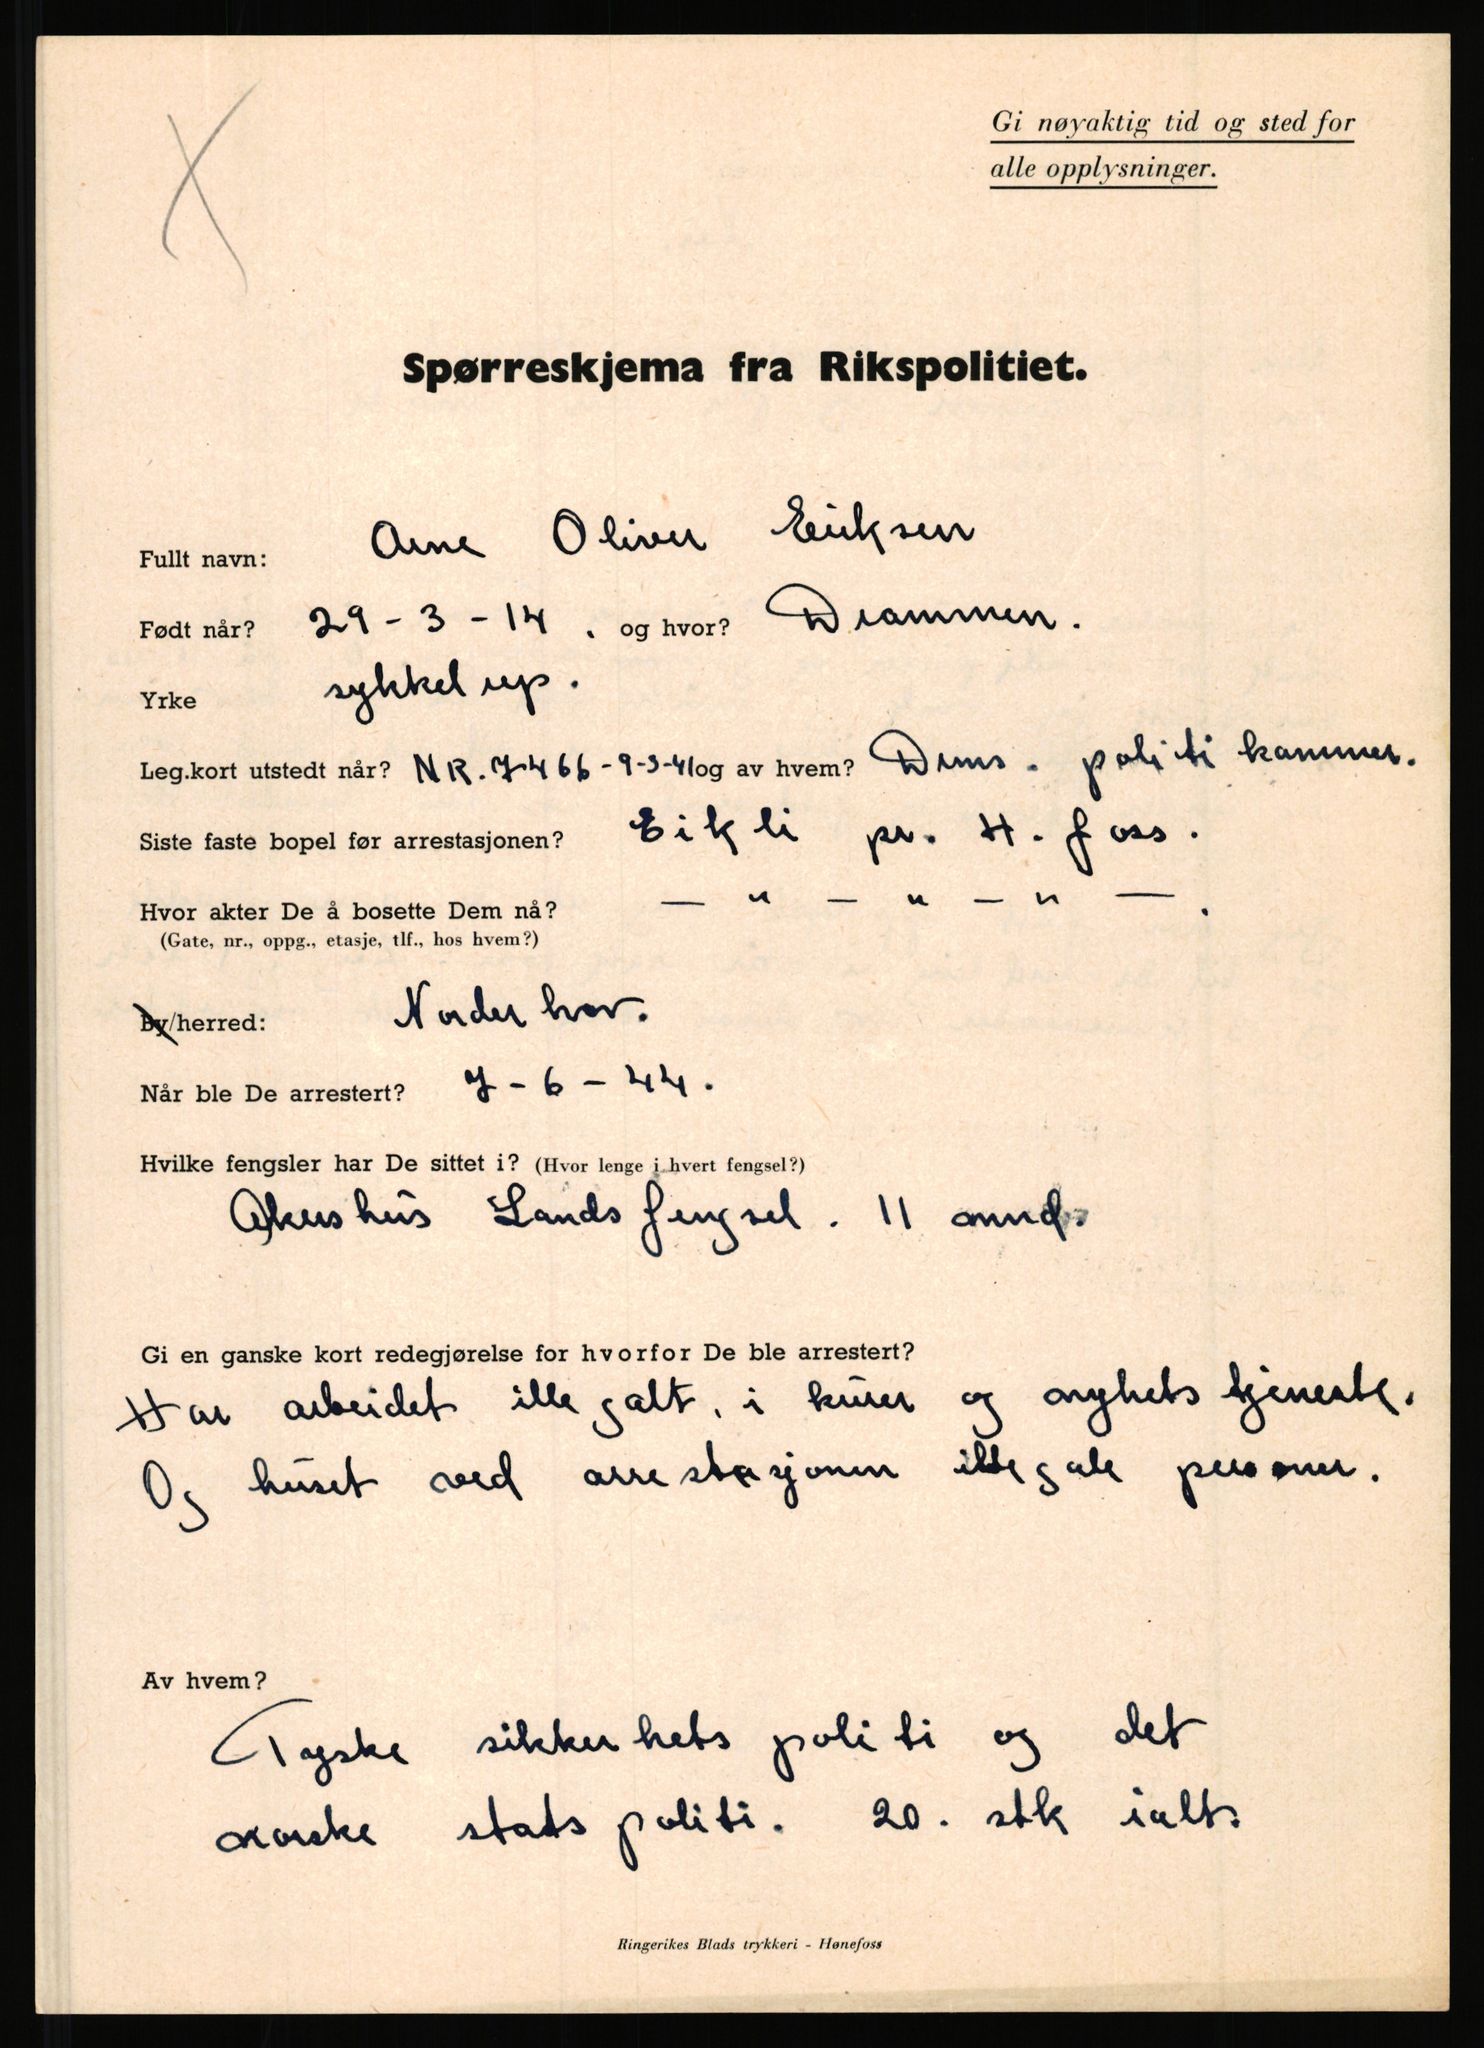 Gi nøyaktig tid og sted for
alle opplysninger.
Spørreskjema fra Rikspolitiet.
Fullt navn: Arne Oliver Eriksen
Født når? 29-3-14. og hvor? Drammen.
Yrke sykkelrep.
Leg.kort utstedt når? NR. 7466-9-3-41 og av hvem? Dms. politikammer.
Siste faste bopel før arrestasjonen? Eikli pr. H.foss.
Hvor akter De å bosette Dem nå? — " — " — " — .
(Gate, nr., oppg., etasje, tlf., hos hvem?)
By/herred: Norderhov.
Når ble De arrestert? 7-6-44.
Hvilke fengsler har De sittet i? (Hvor lenge i hvert fengsel?)
Akershus Landsfengsel. 11 mnd.
Gi en ganske kort redegjørelse for hvorfor De ble arrestert?
Har arbeidet illegalt, i kurer og nyhetstjeneste.
Og huset ved arrestasjonen illegale personer.
Av hvem?
Tyske sikkerhetspoliti og det
norske statspoliti. 20. stk ialt.
Ringerikes Blads trykkeri - Hønefoss